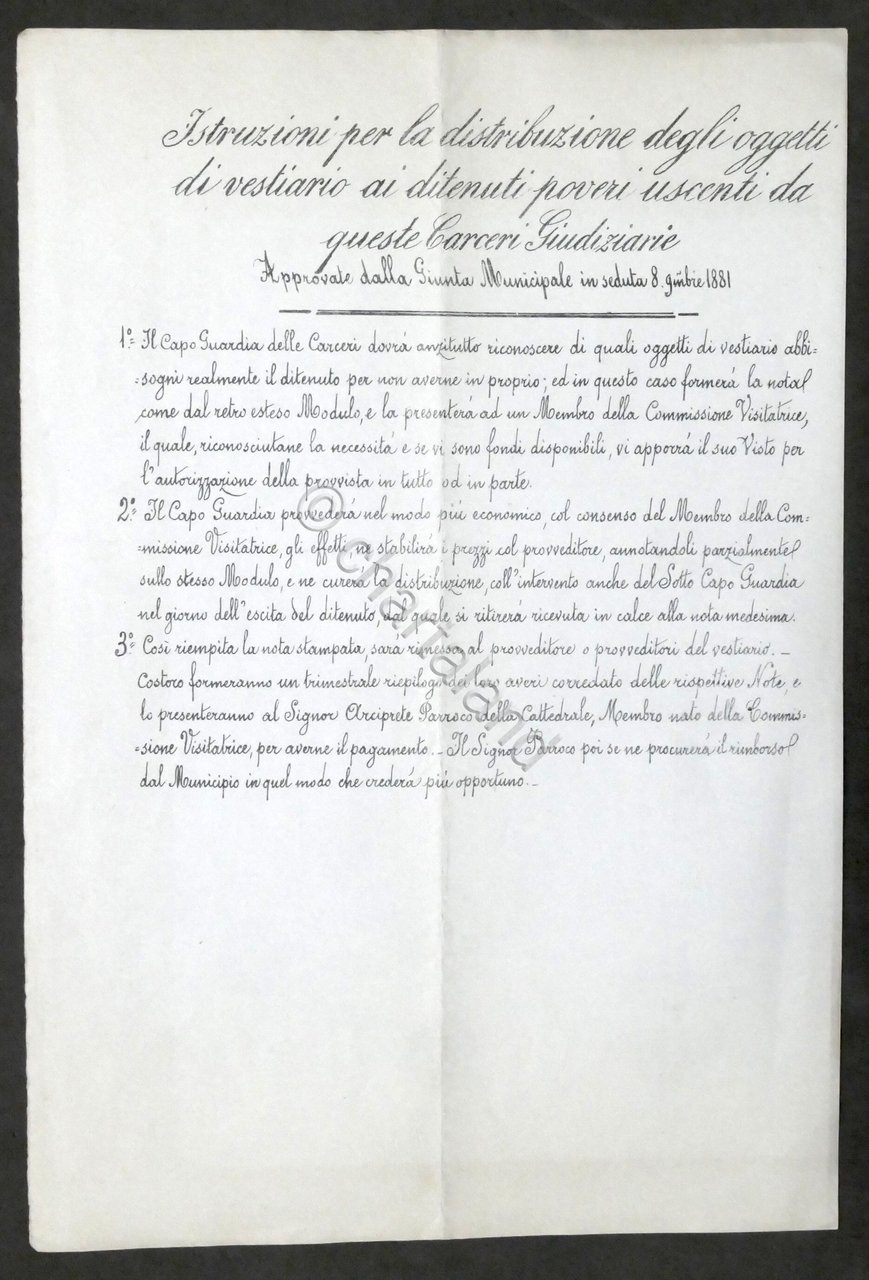 Istruzioni per la distribuzione degli oggetti
di vestiario ai ditenuti poveri uscenti da
queste Carceri Giudiziarie
Approvate dalla Giunta Municipale in seduta 8. gmbre 1881
1º= Il Capo Guardia delle Carceri dovrá anzitutto riconoscere di quali oggetti di vestiario abbi=
=sogni realmente il ditenuto per non averne in proprio; ed in questo caso formerá la nota
come dal retro esteso Modulo, e la presenterá ad un Membro della Commissione Visitatrice,
il quale, riconosciutane la necessitá e se vi sono fondi disponibili, vi apporrá il suo Visto per
l'autorizzazione della provvista in tutto od in parte.
2º= Il Capo Guardia provvederá nel modo piú economico, col consenso del Membro della Com=
=missione Visitatrice, gli effetti, ne stabilirá i prezzi col provveditore, annotandoli parzialmente
sullo stesso Modulo, e ne curerá la distribuzione, coll'intervento anche del Sotto Capo Guardia
nel giorno dell'escita del ditenuto, dal quale si ritirerá ricevuta in calce alla nota medesima.
3º= Cosí riempita la nota stampata, sará rimessa al provveditore o provveditori del vestiario. _
Costoro formeranno un trimestrale riepilogo dei loro averi corredato delle rispettive Note, e
lo presenteranno al Signor Arciprete Parroco della Cattedrale, Membro nato della Commis=
=sione Visitatrice, per averne il pagamento. _ Il Signor Parroco poi se ne procurerá il rimborso
dal Municipio in quel modo che crederá piú opportuno. _
© chartaland